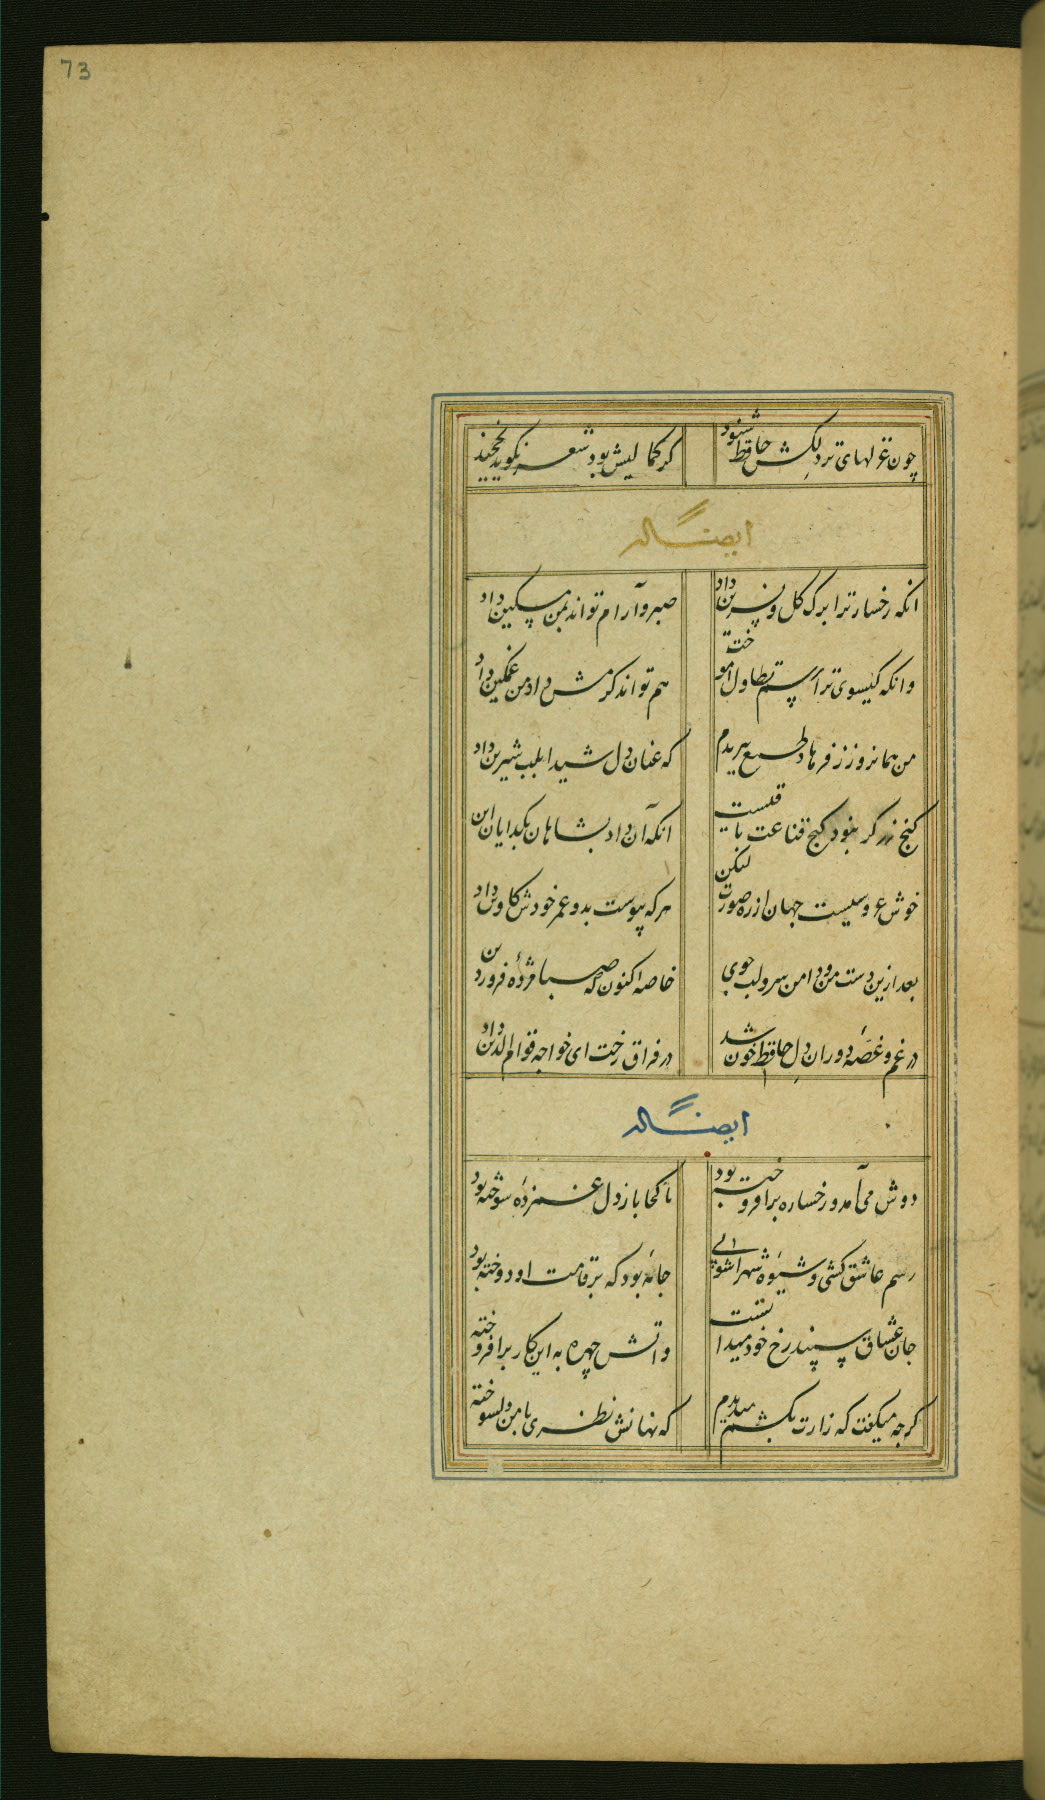 73
چون غزلهای تر دلکش حافظ شنود
گر کمالیش بود شعر نگوید بخجند
ایضاً له
انکه رخسار ترا برک کل و نسرین داد
صبر و آرام تواند بمن مسکین داد
وانکه کیسوی ترا رسم تطاول اموخت
هم تواند کرمش داد من غمکین داد
من همانروز ز فرهاد طمع ببریدم
که عنان دل شیدا بلب شیرین داد
کنج زر کر نبود کنج قناعت باقیست
انکه آن داد بشاهان بکدایان این
خوش عروسیست جهان از ره صورت لیکن
هر که پیوست بدو عمر خودش کاوین داد
بعد ازین دست من و دامن سرو لب جوی
خاصه اکنون که صبا مژدهٔ فروردین
در غم و غصهٔ دوران دل حافظ خون شد
در فراق رخت ای خواجه قوام الدین داد
ایضاً له
دوش می آمد و رخساره برافروخته بود
تا کجا باز دل غمزدهٔ سوخته بود
رسم عاشق کشی و شیوهٔ شهراشوبی
جامهٔ بود که بر قامت او دوخته بود
جان عشاق سپند رخ خود میدانست
واتش چهره به این کار برافروخته
کرچه میکفت که زارت بکشم میدیدم
که نهانش نظری با من دلسوخته